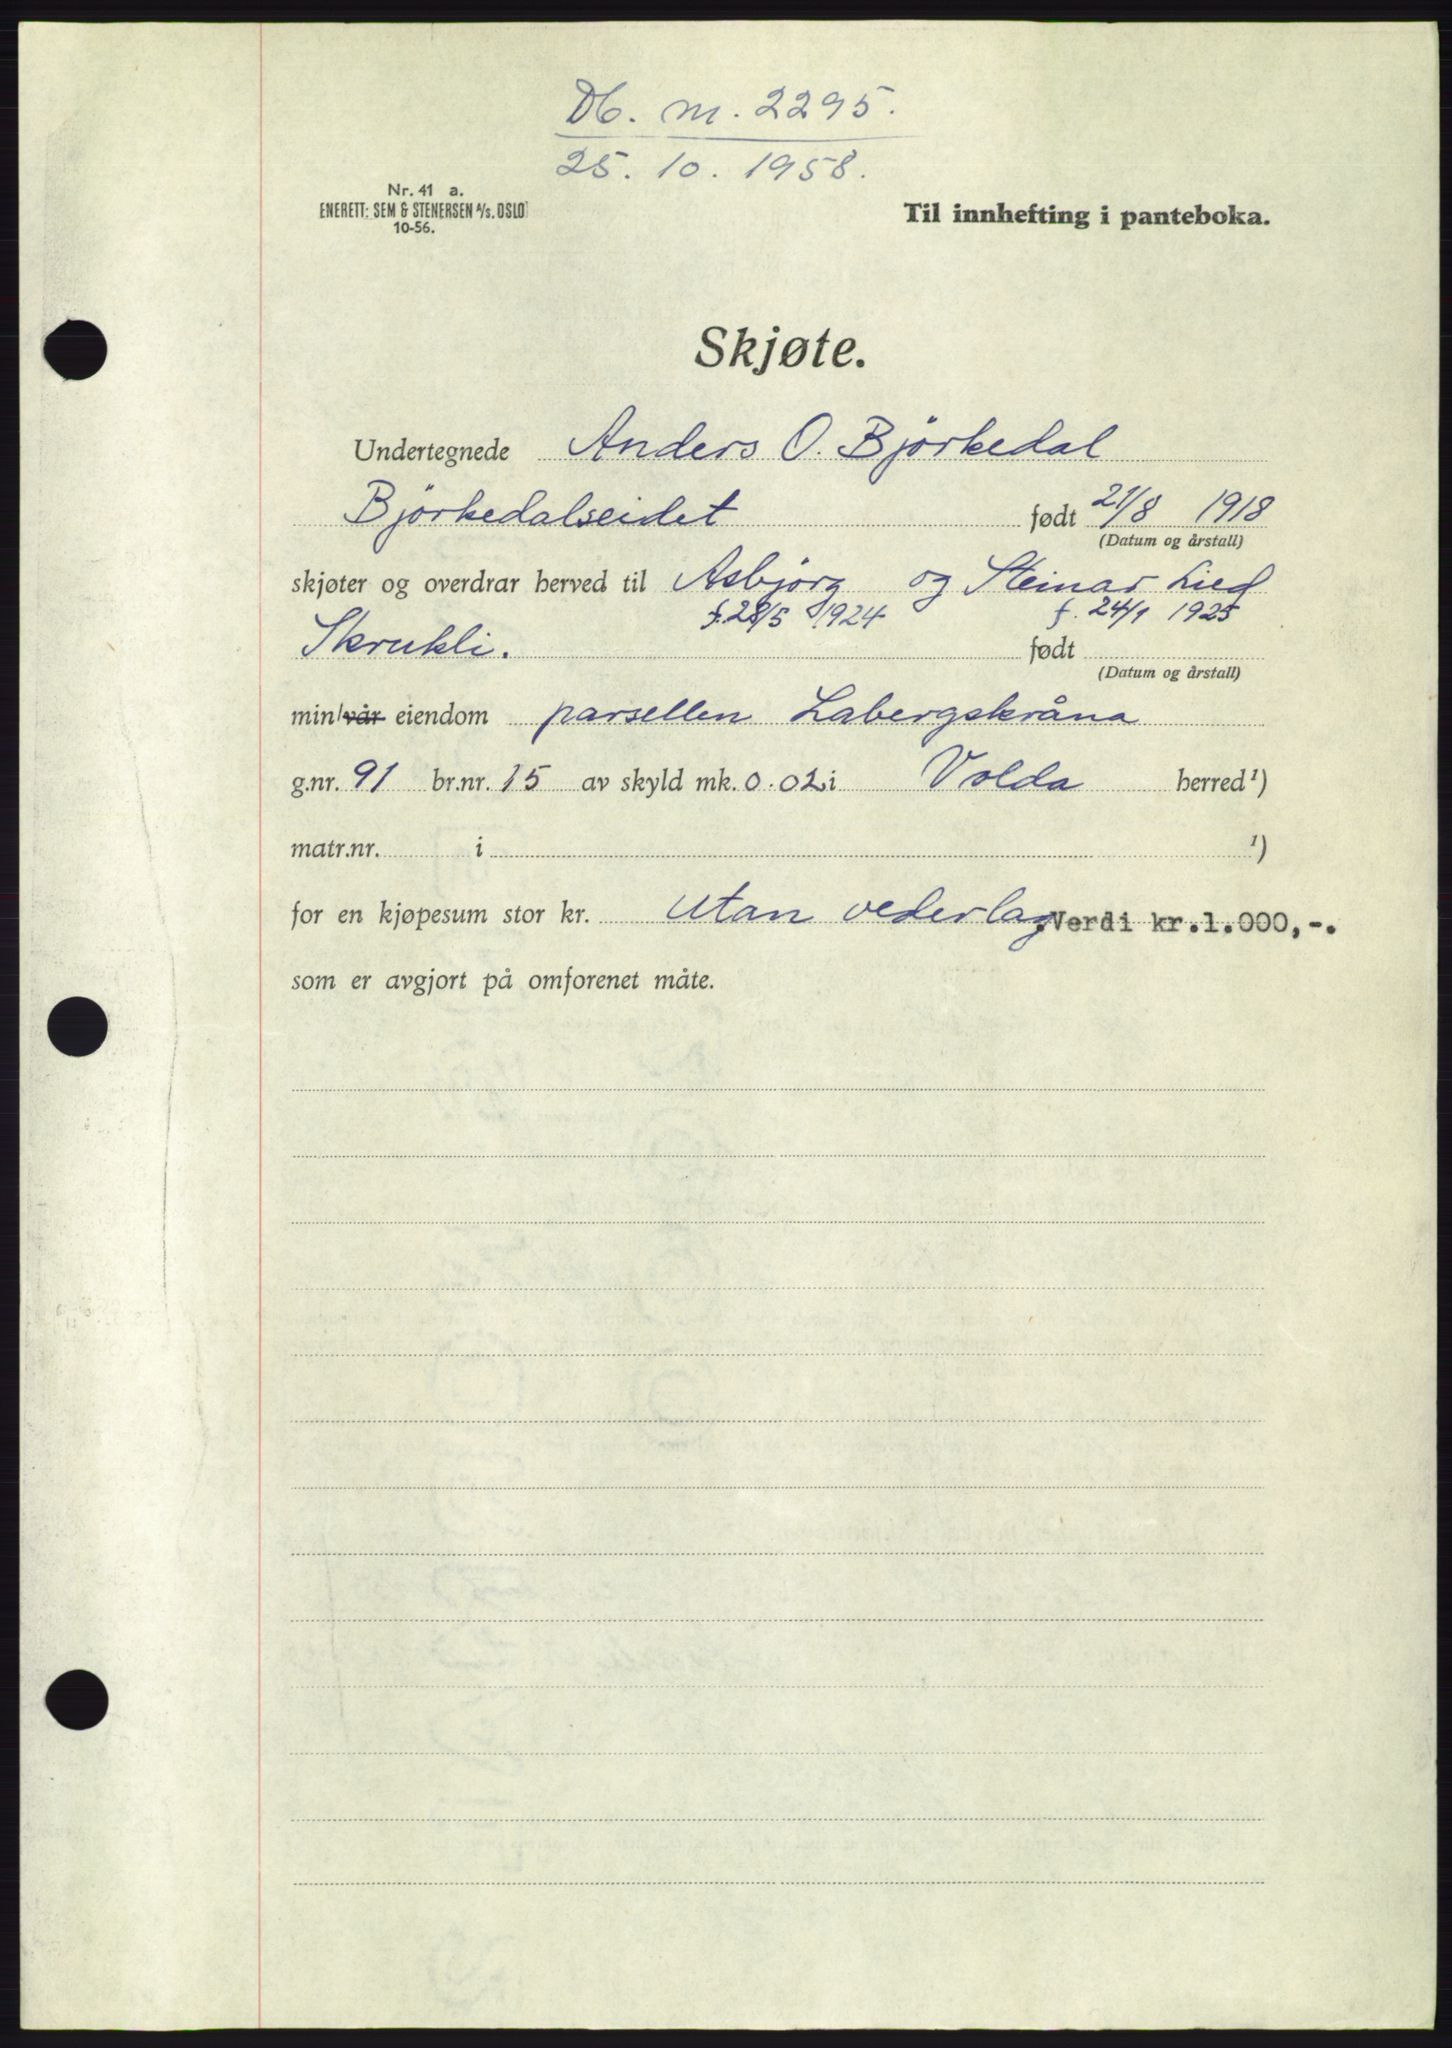 Db. nr. 2295.
25. 10. 1958.
Nr. 41 a.
ENERETT: SEM & STENERSEN A/S. OSLO
10-56.
Til innhefting i panteboka.
Skjøte.
Undertegnede Anders O. Björkedal
Björkedalseidet født 21/8 1918
(Datum og årstall)
skjøter og overdrar herved til Asbjørg og Steinar Lied
f. 28/5 1924 f. 24/1 1925
Skrukli. født
(Datum og årstall)
min/vår eiendom parsellen Labergskråna
g.nr. 91 br.nr. 15 av skyld mk. 0.02 i Volda herred ¹)
matr.nr. i ¹)
for en kjøpesum stor kr. utan vederlag .Verdi kr.1.000,-.
som er avgjort på omforenet måte.